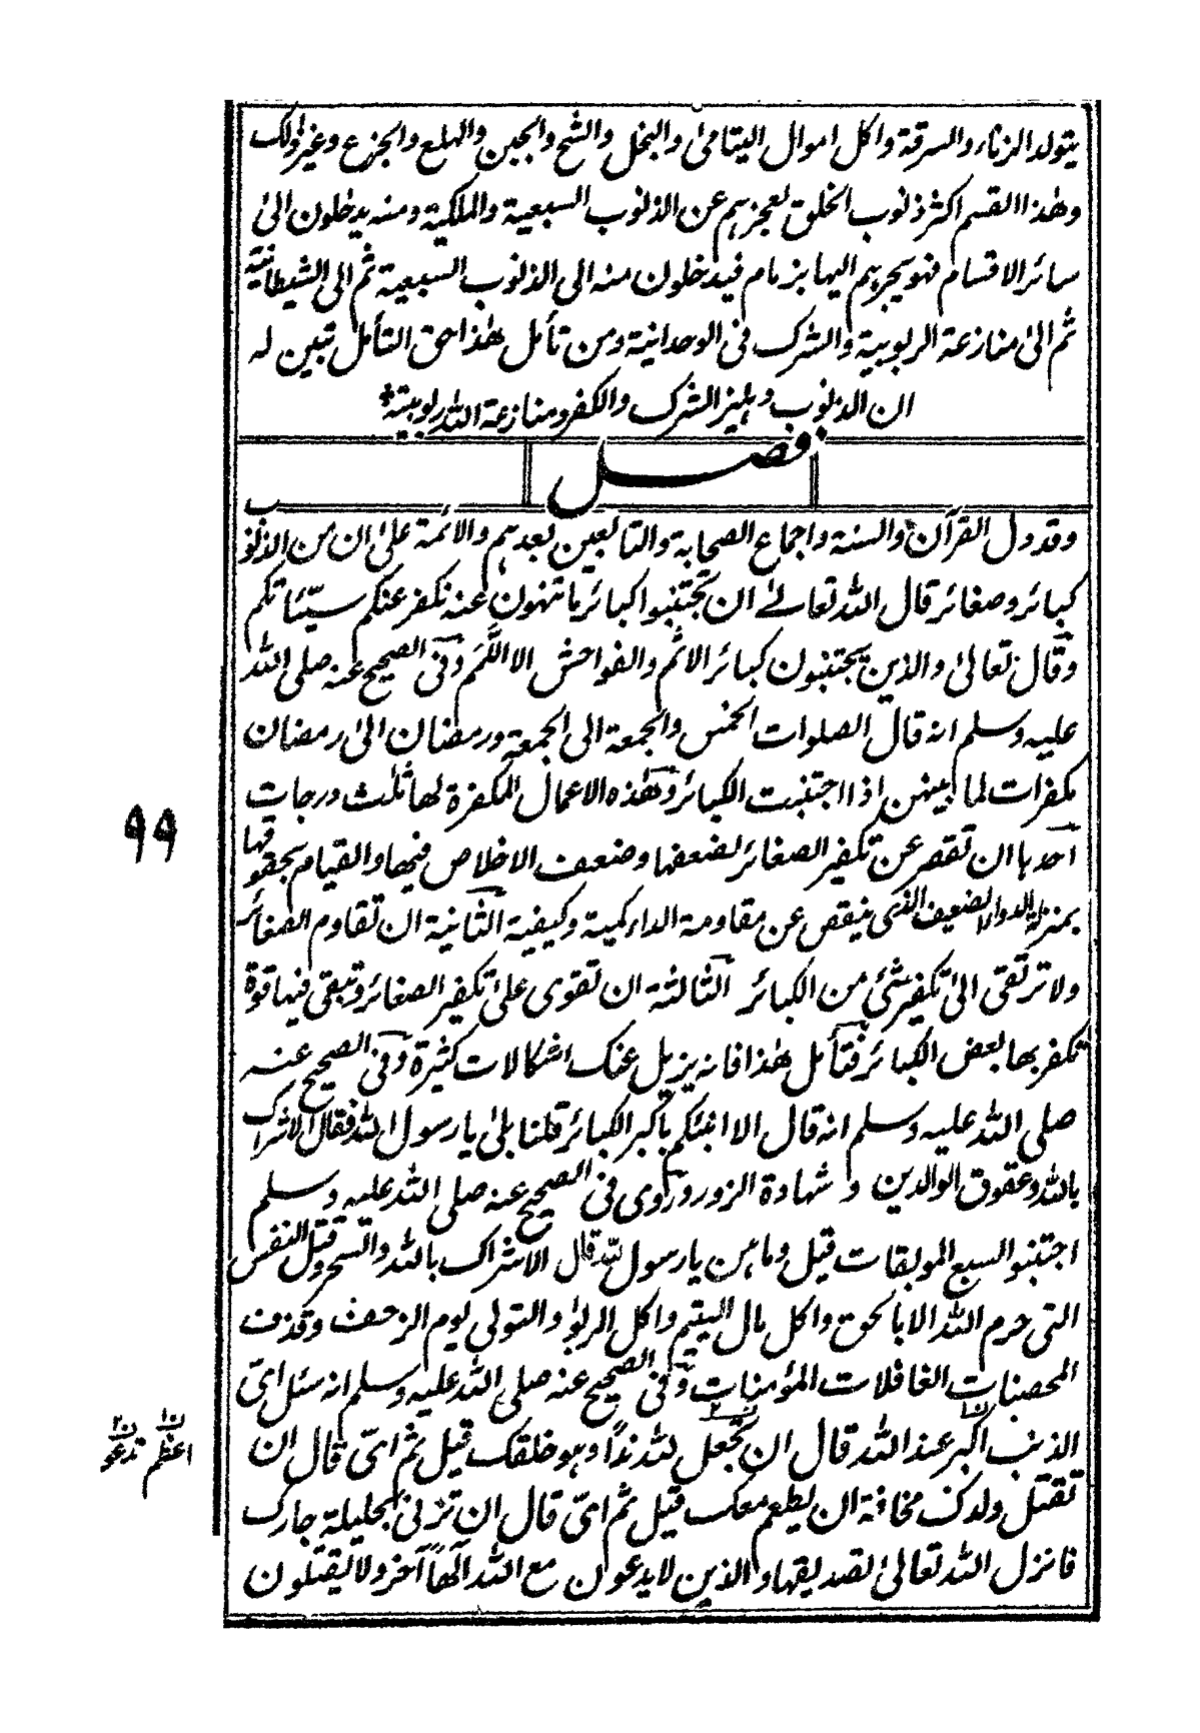 يتولد الزناء والسرقة واكل اموال اليتامى والبخل والشح والجبن والهلع والجزع وغير ذلك
وهذا القسم اكثر ذنوب الخلق لعجزهم عن الذنوب السبعية والملكية ومنه يدخلون الى
سائر الاقسام فهو يجرهم اليها بزمام فيدخلون منه الى الذنوب السبعية ثم الى الشيطانية
ثم الى منازعة الربوبية والشرك فى الوحدانية ومن تأمل هذا حق التأمل تبين له
ان الذنوب دهليز الشرك والكفر ومنازعة الله ربوبيته
فصل
وقد دل القرآن والسنة واجماع الصحابة والتابعين بعدهم والائمة على ان من الذنوب
كبائر وصغائر قال الله تعالى ان تجتنبوا كبائر ما تنهون عنه نكفر عنكم سيّئاتكم
وقال تعالى والذين يجتنبون كبائر الاثم والفواحش الا اللَّمَم وفى الصحيح عنه صلى الله
عليه وسلم انه قال الصلوات الخمس والجمعة الى الجمعة ورمضان الى رمضان
مكفرات لما بينهن اذا اجتنبت الكبائر وهذه الاعمال المكفرة لها ثلث درجات
احدها ان تقصر عن تكفير الصغائر لضعفها وضعف الاخلاص فيها والقيام بحقوقها
بمنزلة الدواء الضعيف الذى ينقص عن مقاومة الداء كمية وكيفية الثانية ان تقاوم الصغائر
ولا ترتقى الى تكفير شئ من الكبائر الثالثة ان تقوى على تكفير الصغائر وتبقى فيها قوة
تكفر بها بعض الكبائر فتأمل هذا فانه يزيل عنك اشكالات كثيرة وفى الصحيح عنه
صلى الله عليه وسلم انه قال الا انبئكم باكبر الكبائر قلنا بلى يا رسول الله فقال الاشراك
بالله وعقوق الوالدين و شهادة الزور وروى فى الصحيح عنه صلى الله عليه وسلم
اجتنبو السبع الموبقات قيل وما هن يا رسول الله قال الاشراك بالله والسحر وقتل النفس
التى حرم الله الا بالحق واكل مال اليتيم واكل الربوا والتولى يوم الزحف وقذف
المحصنات الغافلات المؤمنات وفى الصحيح عنه صلى الله عليه وسلم انه سئل اىّ
الذنب اكبر عند الله قال ان تجعل لله ندّا وهو خلقك قيل ثم اىّ قال ان
تقتل ولدك مخافة ان يطعم معك قيل ثم اىّ قال ان تزنى بحليلة جارك
فانزل الله تعالى تصديقها والذين لا يدعون مع الله الهاً آخر ولا يقتلون
٩٩
ن١ اعظم ن٢ تدعو